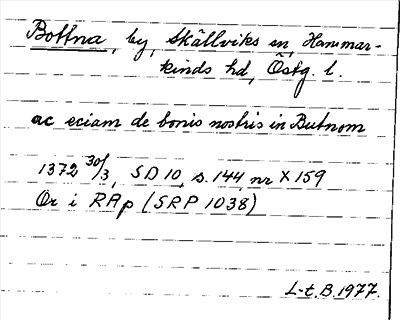 Bottna, by, Skällviks sn, Hammar-
kinds hd, Östg. l.
ac eciam de bonis nostris in Butnom
1372 30/3, SD 10, s. 144, nr X 159
Or i RAp (SRP 1038)
L-t. B. 1977.